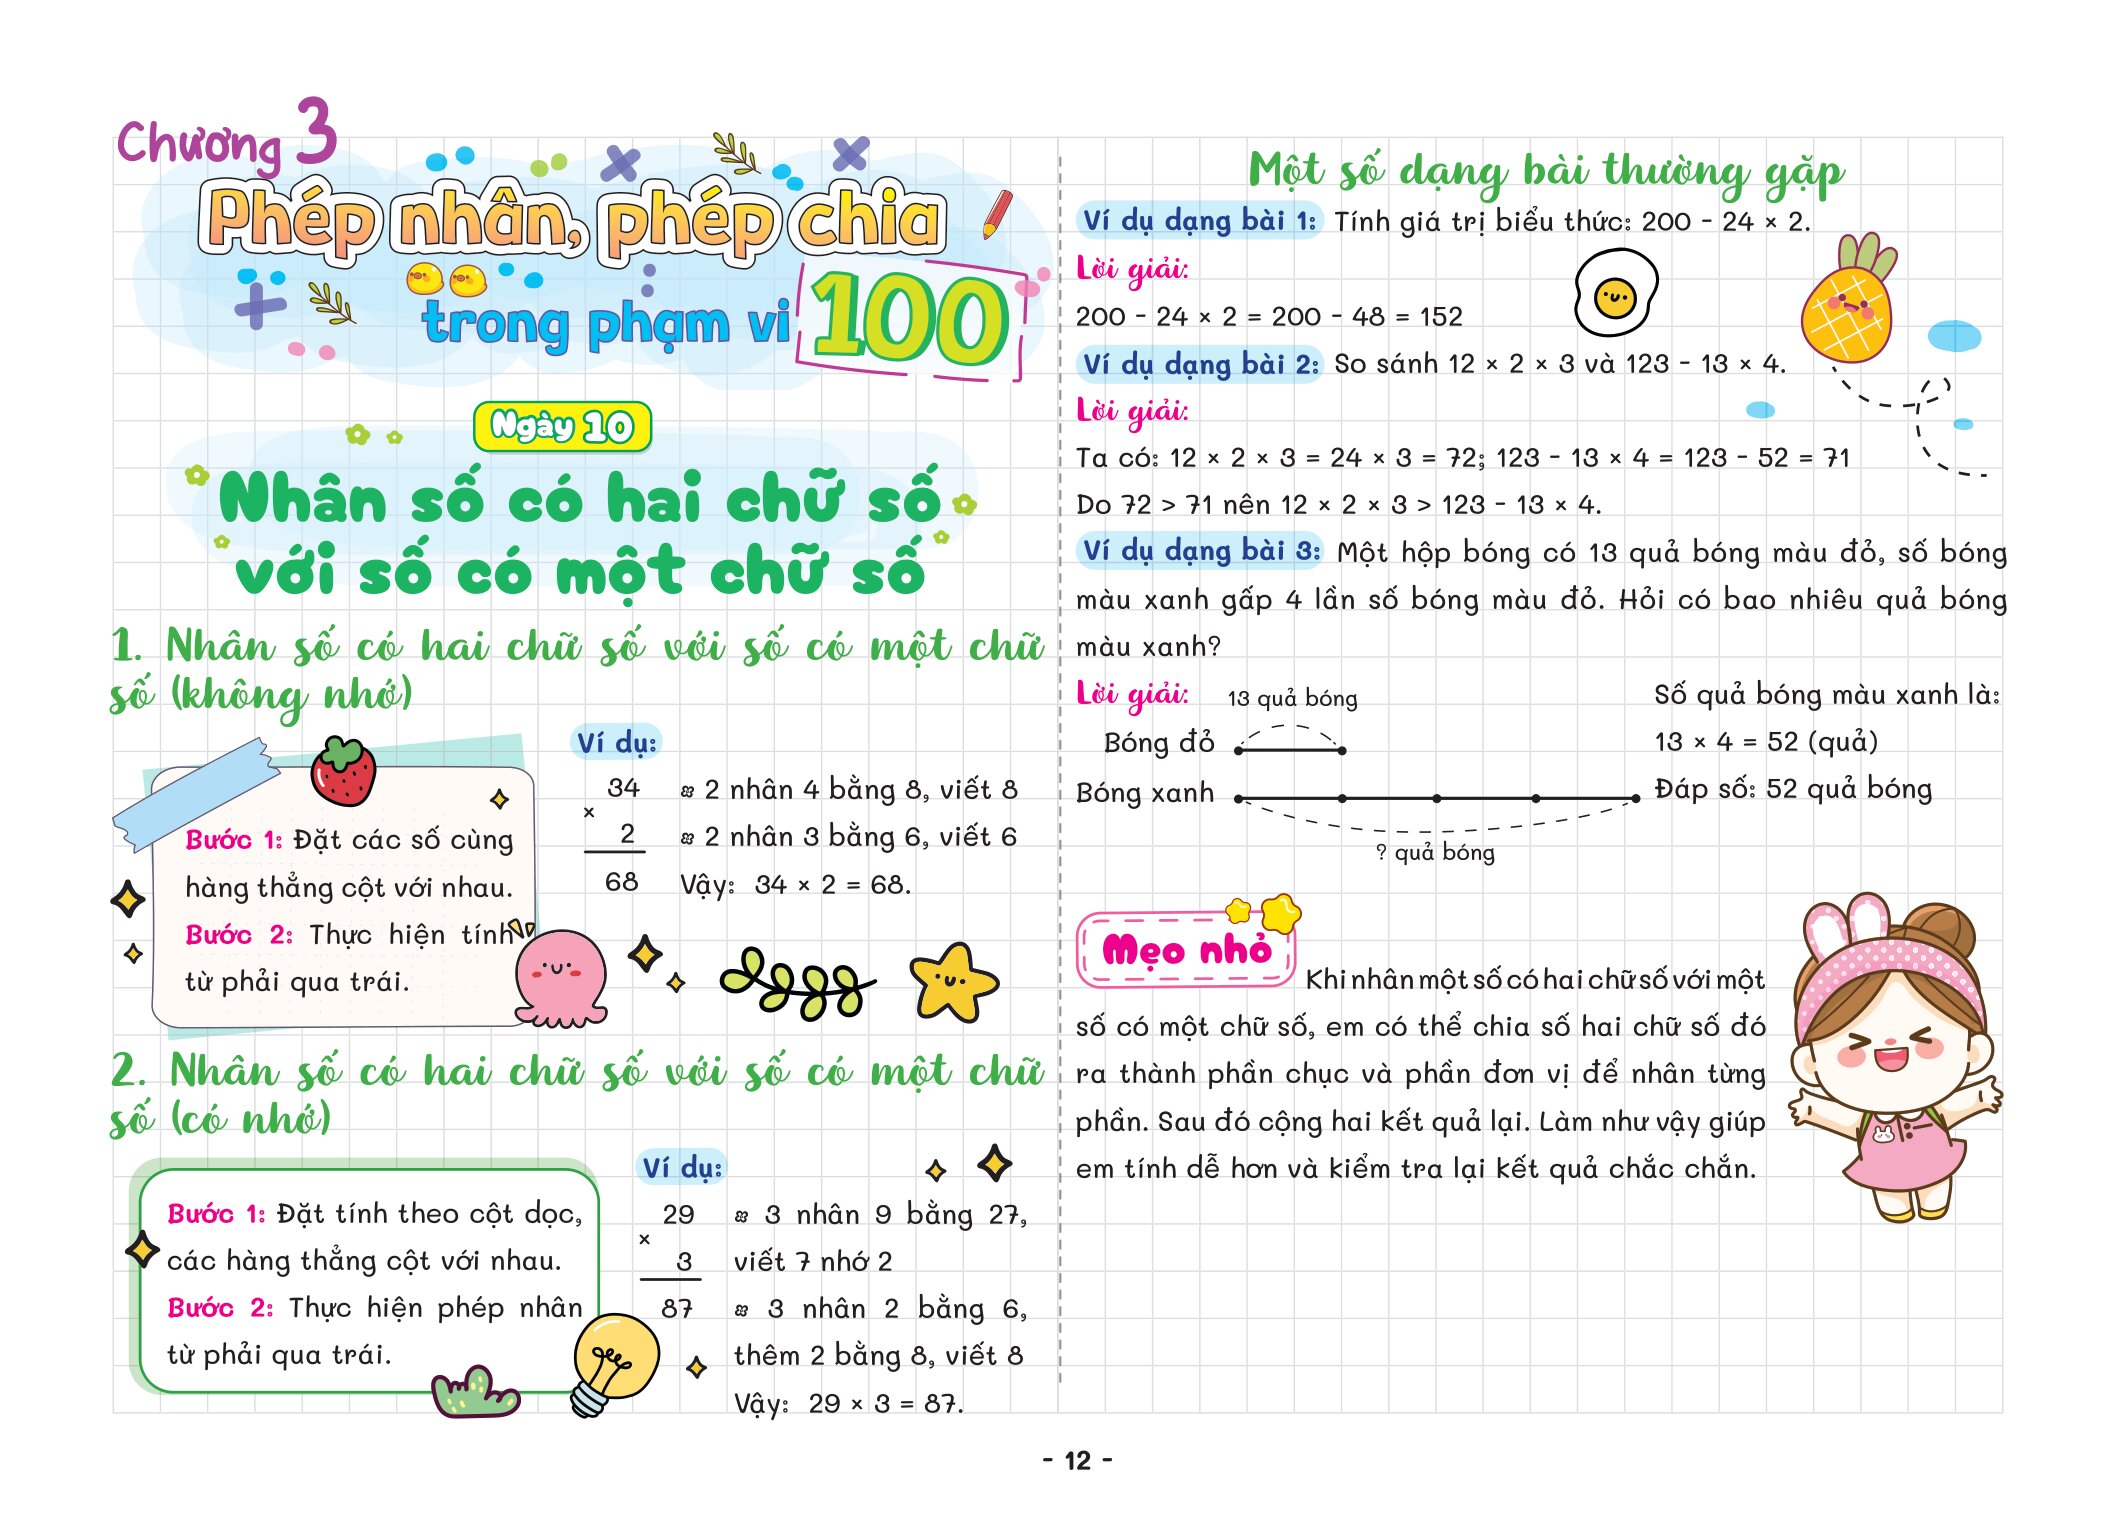 Chương 3
Phép nhân, phép chia
trong phạm vi 100
Ngày 10
Nhân số có hai chữ số
với số có một chữ số
1. Nhân số có hai chữ số với số có một chữ
số (không nhớ)
Bước 1: Đặt các số cùng
hàng thẳng cột với nhau.
Bước 2: Thực hiện tính
từ phải qua trái.
Ví dụ:
34
×
2
68
2 nhân 4 bằng 8, viết 8
2 nhân 3 bằng 6, viết 6
Vậy: 34 × 2 = 68.
2. Nhân số có hai chữ số với số có một chữ
số (có nhớ)
Bước 1: Đặt tính theo cột dọc,
các hàng thẳng cột với nhau.
Bước 2: Thực hiện phép nhân
từ phải qua trái.
Ví dụ:
29
×
3
87
3 nhân 9 bằng 27,
viết 7 nhớ 2
3 nhân 2 bằng 6,
thêm 2 bằng 8, viết 8
Vậy: 29 × 3 = 87.
Một số dạng bài thường gặp
Ví dụ dạng bài 1: Tính giá trị biểu thức: 200 - 24 × 2.
Lời giải:
200 - 24 × 2 = 200 - 48 = 152
Ví dụ dạng bài 2: So sánh 12 × 2 × 3 và 123 - 13 × 4.
Lời giải:
Ta có: 12 × 2 × 3 = 24 × 3 = 72; 123 - 13 × 4 = 123 - 52 = 71
Do 72 > 71 nên 12 × 2 × 3 > 123 - 13 × 4.
Ví dụ dạng bài 3: Một hộp bóng có 13 quả bóng màu đỏ, số bóng
màu xanh gấp 4 lần số bóng màu đỏ. Hỏi có bao nhiêu quả bóng
màu xanh?
Lời giải:
13 quả bóng
Bóng đỏ
Bóng xanh
? quả bóng
Số quả bóng màu xanh là:
13 × 4 = 52 (quả)
Đáp số: 52 quả bóng
Mẹo nhỏ
Khi nhân một số có hai chữ số với một
số có một chữ số, em có thể chia số hai chữ số đó
ra thành phần chục và phần đơn vị để nhân từng
phần. Sau đó cộng hai kết quả lại. Làm như vậy giúp
em tính dễ hơn và kiểm tra lại kết quả chắc chắn.
- 12 -